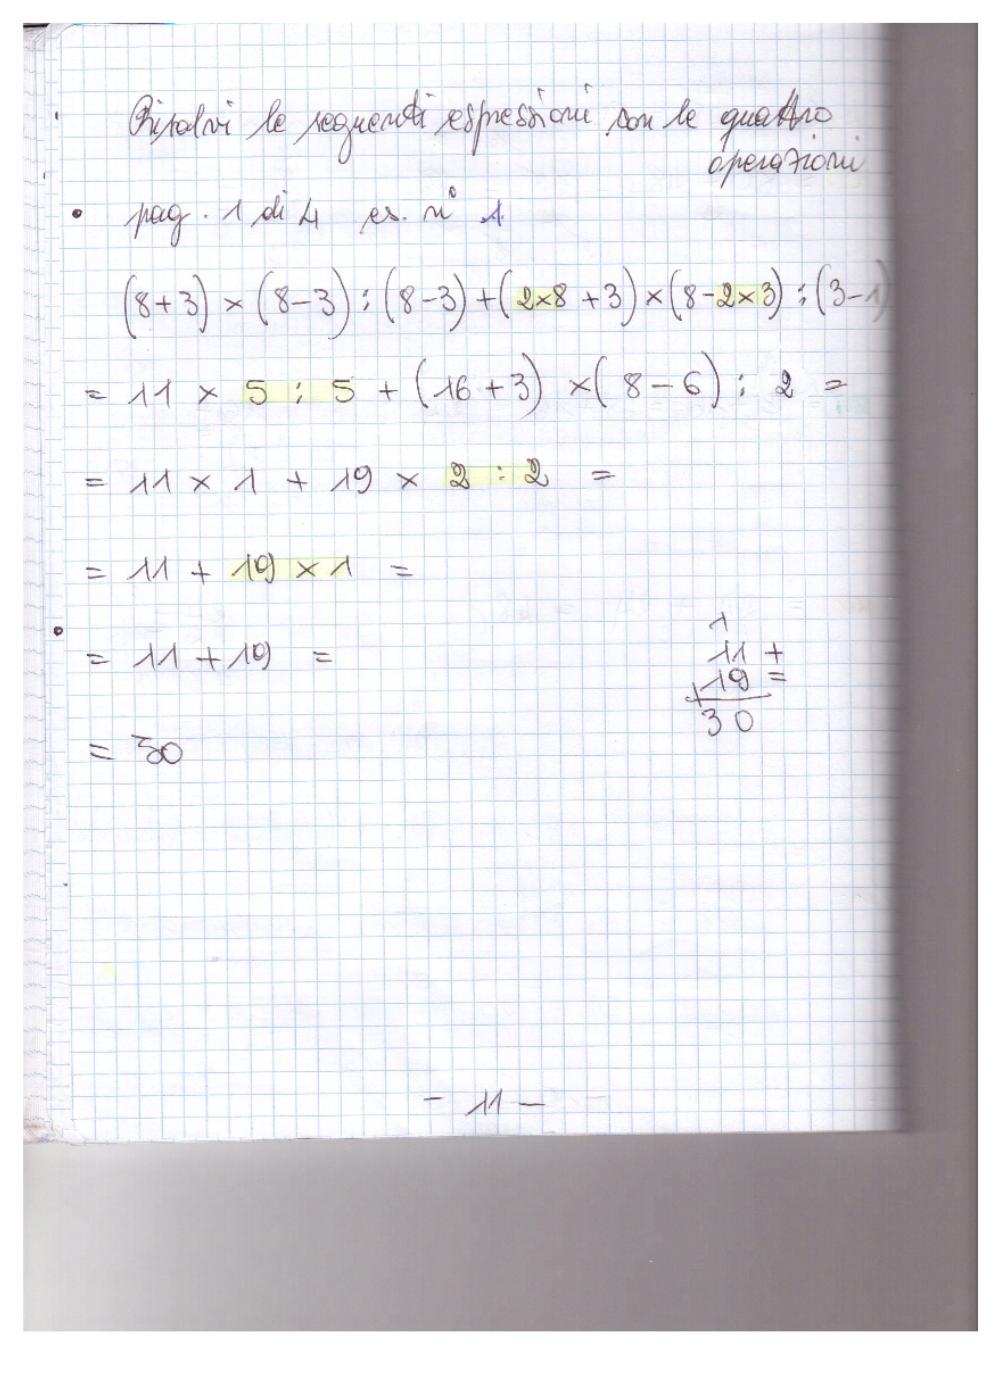 Risolvi le seguenti espressioni con le quattro
operazioni
pag. 1 di 4 es. n° 1.
(8+3) × (8-3) : (8-3) + (2×8 + 3) × (8-2×3) : (3-1)
= 11 × 5 : 5 + (16+3) × (8-6) : 2 =
= 11 × 1 + 19 × 2 : 2 =
= 11 + 19 × 1 =
= 11 + 19 =
1
11 +
+ 19 =
30
= 30
- 11 -